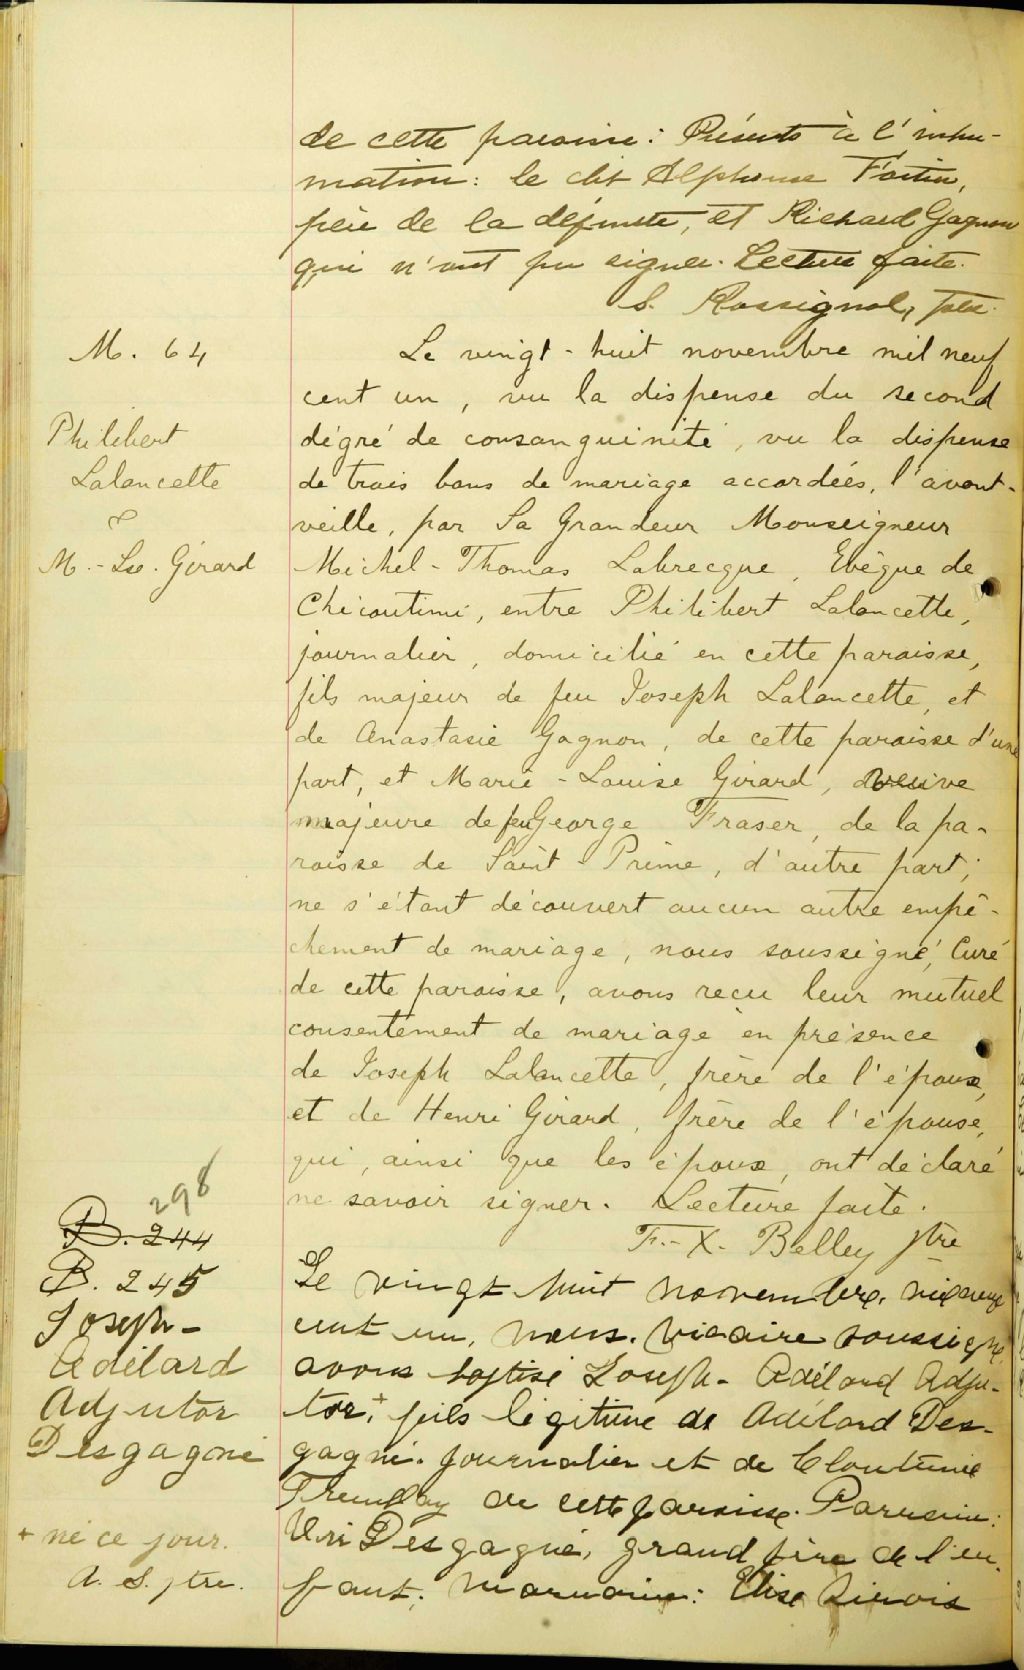 de cette paroisse: Présents à l'inhu-
mation: le dit Alphonse Fortin,
père de la défunte, et Richard Gagnon
qui n'ont pu signer. Lecture faite.
S. Rossignol, ptre.
M. 64
Philibert
Lalancette
&
M.-Lse. Girard
Le vingt-huit novembre mil neuf
cent un, vu la dispense du second
dégré de consanguinité, vu la dispense
de trois bans de mariage accordées, l'avant-
veille, par Sa Grandeur Monseigneur
Michel-Thomas Labrecque, Evêque de
Chicoutimi, entre Philibert Lalancette,
journalier, domicilié en cette paroisse,
fils majeur de feu Joseph Lalancette, et
de Anastasie Gagnon, de cette paroisse d'une
part, et Marie-Louise Girard, veuve
majeure de feu George Fraser, de la pa-
roisse de Saint-Prime, d'autre part;
ne s'étant découvert aucun autre empê-
chement de mariage, nous soussigné, Curé
de cette paroisse, avons reçu leur mutuel
consentement de mariage en présence
de Joseph Lalancette, frère de l'époux,
et de Henri Girard, frère de l'épouse,
qui, ainsi que les époux, ont déclaré
ne savoir signer. Lecture faite.
F.-X. Belley ptre
298
B. 244
B. 245
Joseph-
Adélard
Adjutor
Desgagné
+ né ce jour.
A. S. ptre.
Le vingt huit novembre, mil neuf
cent un, nous, vicaire soussigné,
avons baptisé Joseph-Adélard Adju-
tor,+ fils légitime de Adélard Des-
gagné, journalier et de Cloutinie
Tremblay de cette paroisse. Parrain:
Uri Desgagné, grand père de l'en-
fant; marraine: Elise Sirois